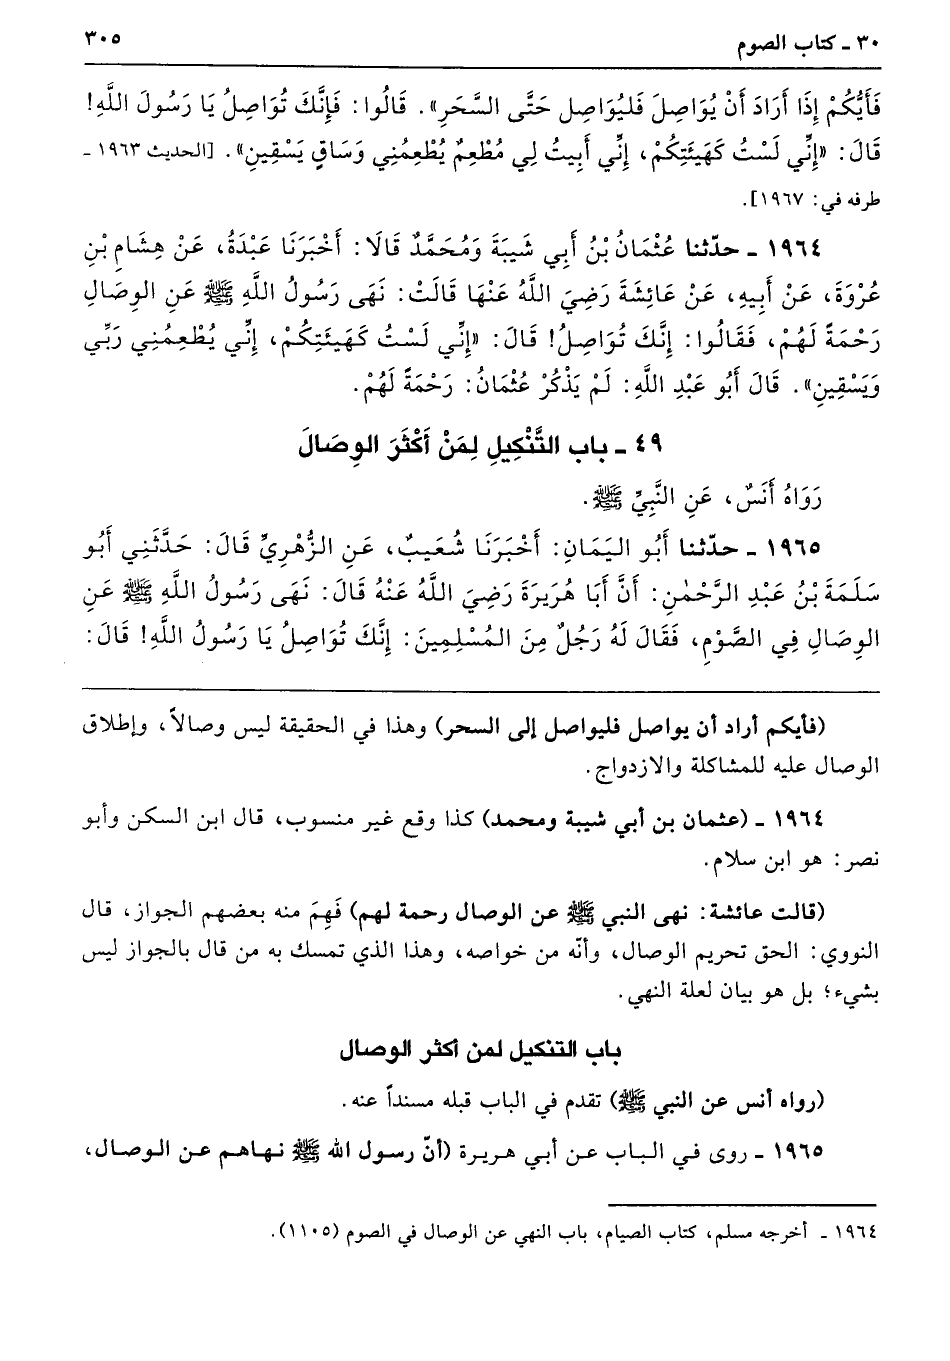 ٣٠ ـ كتاب الصوم
٣٠٥
فَأَيُّكُمْ إِذَا أَرَادَ أَنْ يُوَاصِلَ فَليُوَاصِل حَتَّى السَّحَرِ». قَالُوا: فَإِنَّكَ تُوَاصِلُ يَا رَسُولَ اللَّهِ!
قَالَ: «إِنِّي لَسْتُ كَهَيْئَتِكُمْ، إِنِّي أَبِيتُ لِي مُطْعِمٌ يُطْعِمُنِي وَسَاقٍ يَسْقِينِ». [الحديث ١٩٦٣ ـ
طرفه في: ١٩٦٧].
١٩٦٤ ـ حدّثنا عُثْمَانُ بْنُ أَبِي شَيبَةَ وَمُحَمَّدٌ قَالَا: أَخْبَرَنَا عَبْدَةُ، عَنْ هِشَامِ بْنِ
عُرْوَةَ، عَنْ أَبِيهِ، عَنْ عَائِشَةَ رَضِيَ اللَّهُ عَنْهَا قَالَتْ: نَهَى رَسُولُ اللَّهِ ﷺ عَنِ الوِصَالِ
رَحْمَةً لَهُمْ، فَقَالُوا: إِنَّكَ تُوَاصِلُ! قَالَ: «إِنِّي لَسْتُ كَهَيْئَتِكُمْ، إِنِّي يُطْعِمُنِي رَبِّي
وَيَسْقِينِ». قَالَ أَبُو عَبْدِ اللَّهِ: لَمْ يَذْكُرْ عُثْمَانُ: رَحْمَةً لَهُمْ.
٤٩ ـ باب التَّنْكِيلِ لِمَنْ أَكْثَرَ الوِصَالَ
رَوَاهُ أَنَسٌ، عَنِ النَّبِيِّ ﷺ.
١٩٦٥ ـ حدّثنا أَبُو اليَمَانِ: أَخْبَرَنَا شُعَيبٌ، عَنِ الزُّهْرِيِّ قَالَ: حَدَّثَنِي أَبُو
سَلَمَةَ بْنُ عَبْدِ الرَّحْمٰنِ: أَنَّ أَبَا هُرَيرَةَ رَضِيَ اللَّهُ عَنْهُ قَالَ: نَهَى رَسُولُ اللَّهِ ﷺ عَنِ
الوِصَالِ فِي الصَّوْمِ، فَقَالَ لَهُ رَجُلٌ مِنَ المُسْلِمِينَ: إِنَّكَ تُوَاصِلُ يَا رَسُولُ اللَّهِ! قَالَ:
(فأيكم أراد أن يواصل فليواصل إلى السحر) وهذا في الحقيقة ليس وصالاً، وإطلاق
الوصال عليه للمشاكلة والازدواج.
١٩٦٤ ـ (عثمان بن أبي شيبة ومحمد) كذا وقع غير منسوب، قال ابن السكن وأبو
نصر: هو ابن سلام.
(قالت عائشة: نهى النبي ﷺ عن الوصال رحمة لهم) فَهِمَ منه بعضهم الجواز، قال
النووي: الحق تحريم الوصال، وأنّه من خواصه، وهذا الذي تمسك به من قال بالجواز ليس
بشيء؛ بل هو بيان لعلة النهي.
باب التنكيل لمن أكثر الوصال
(رواه أنس عن النبي ﷺ) تقدم في الباب قبله مسنداً عنه.
١٩٦٥ ـ روى في الباب عن أبي هريرة (أنّ رسول الله ﷺ نهاهم عن الوصال،
١٩٦٤ ـ أخرجه مسلم، كتاب الصيام، باب النهي عن الوصال في الصوم (١١٠٥).